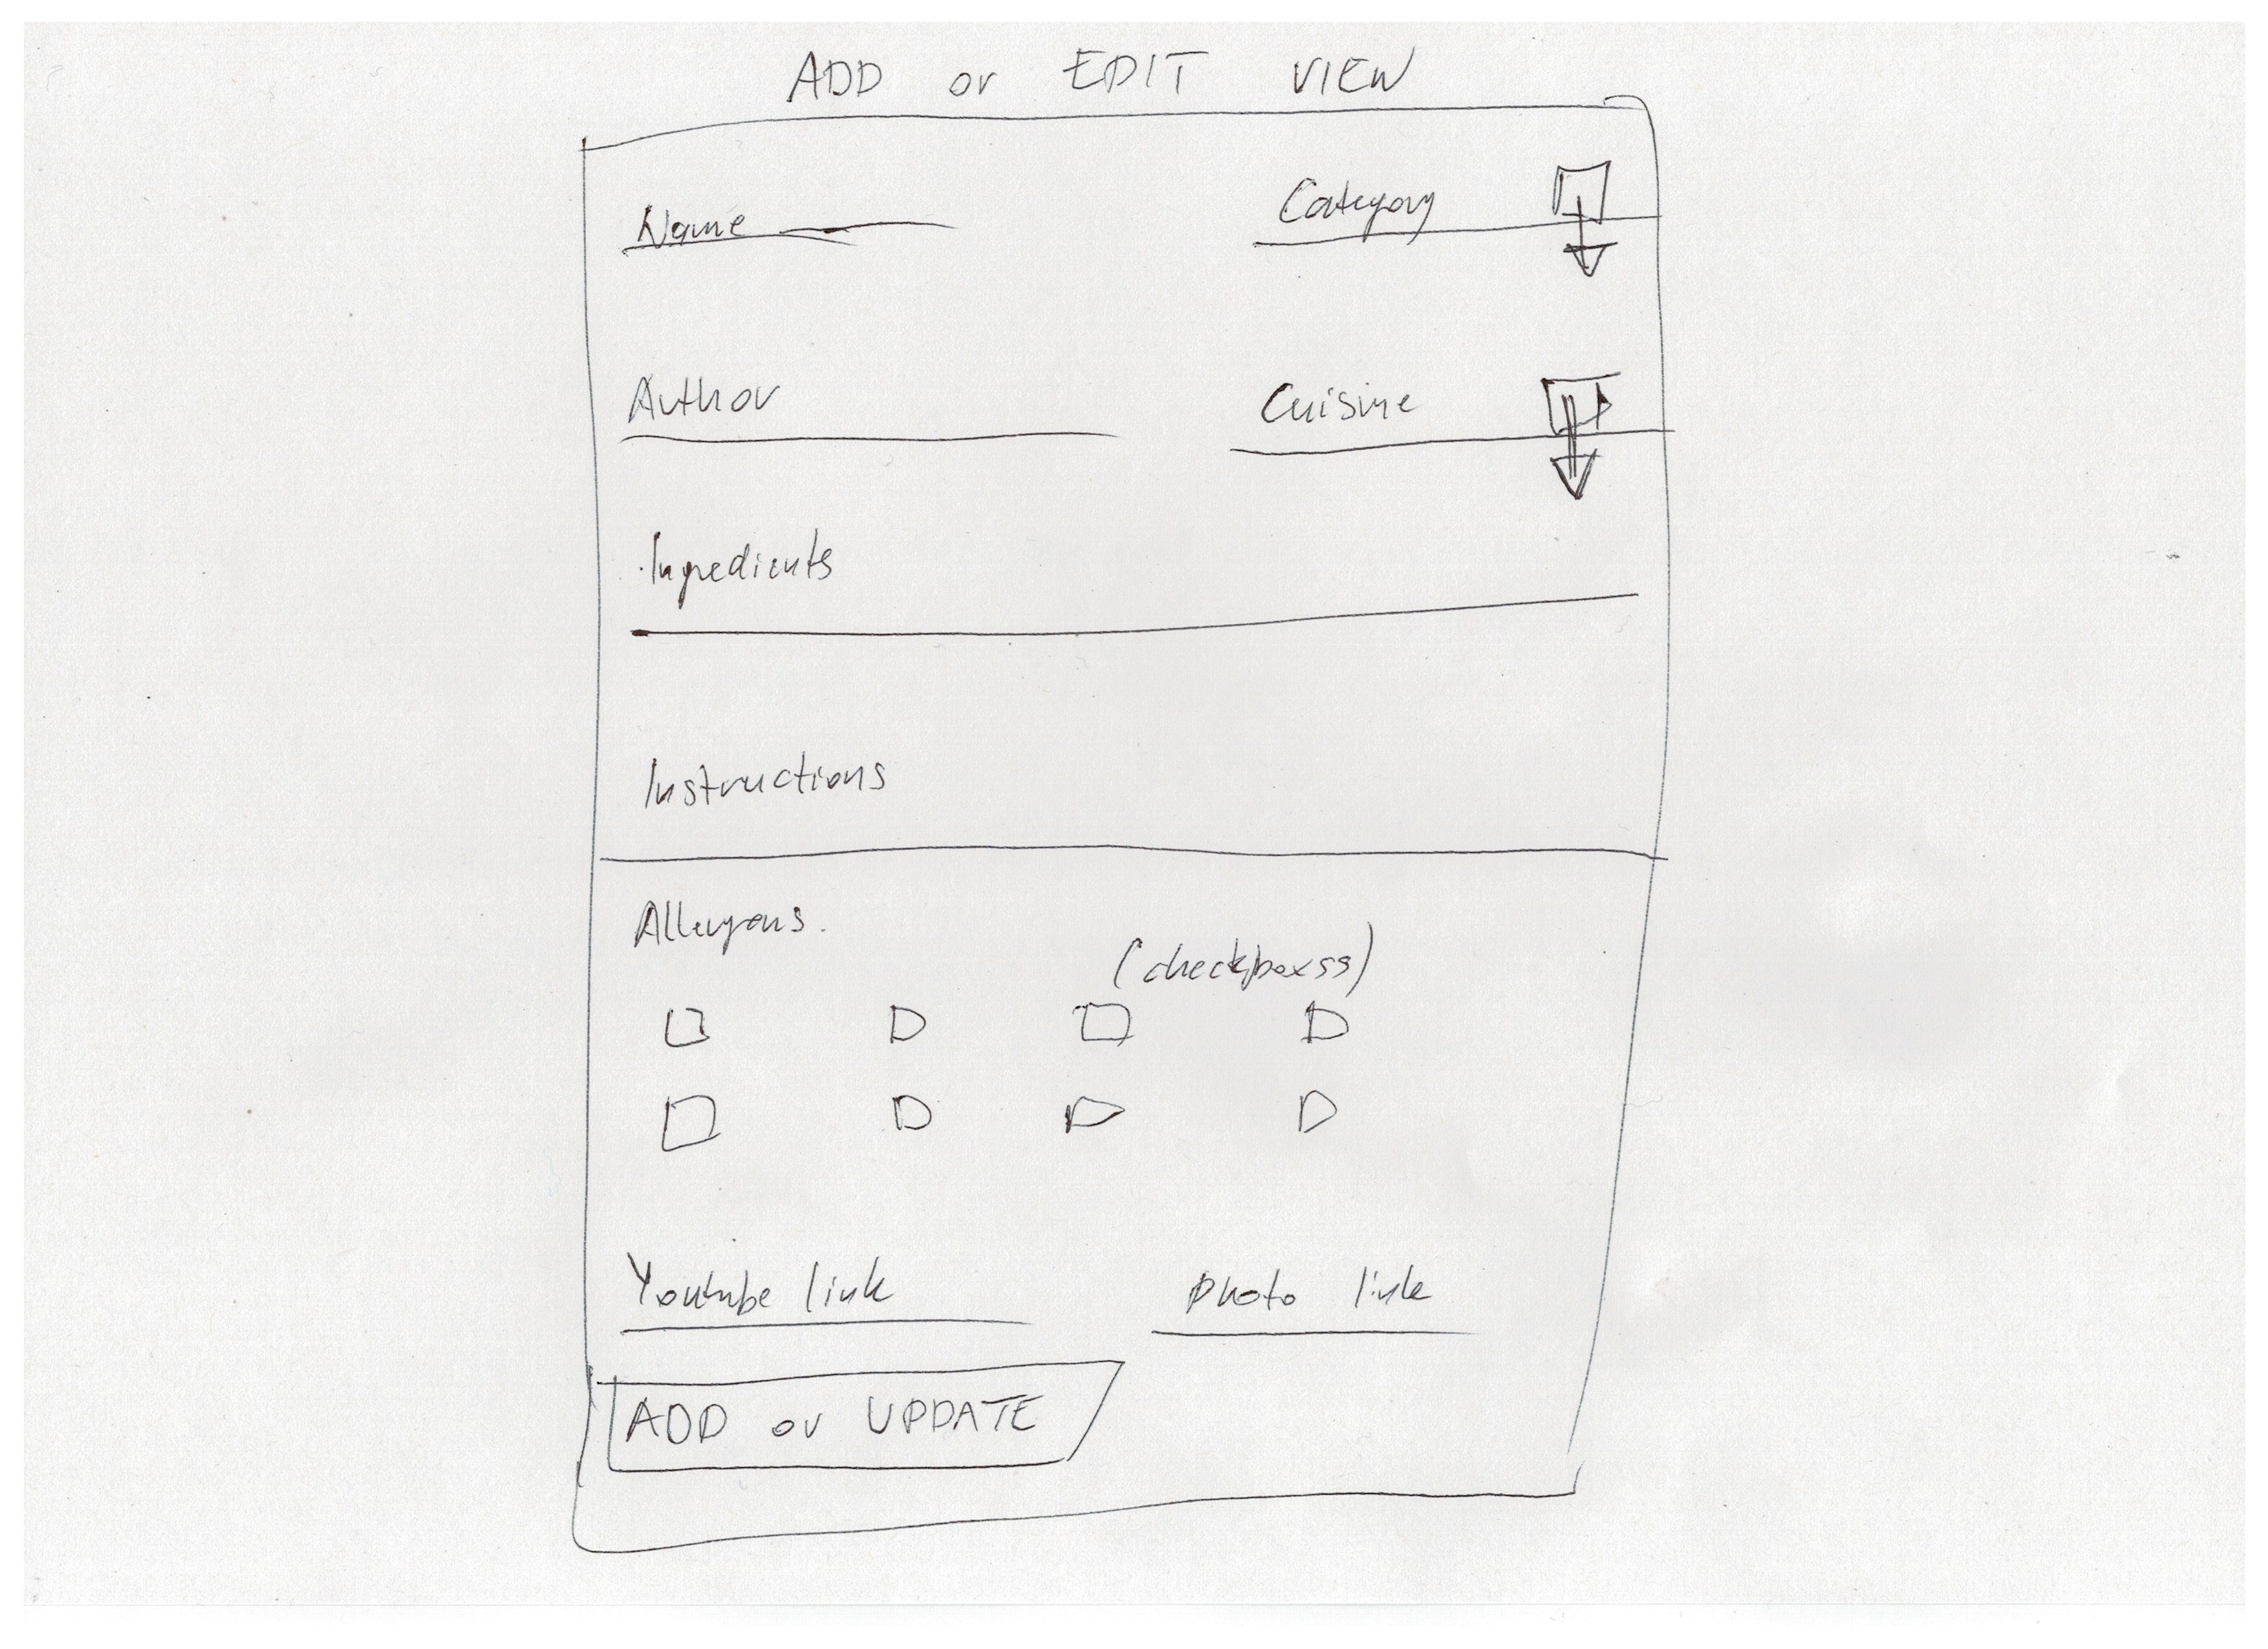 ADD or EDIT VIEW
Name Category
Author Cuisine
Ingredients
Instructions
Allergens.
(checkboxss)
Youtube link photo link
ADD or UPDATE